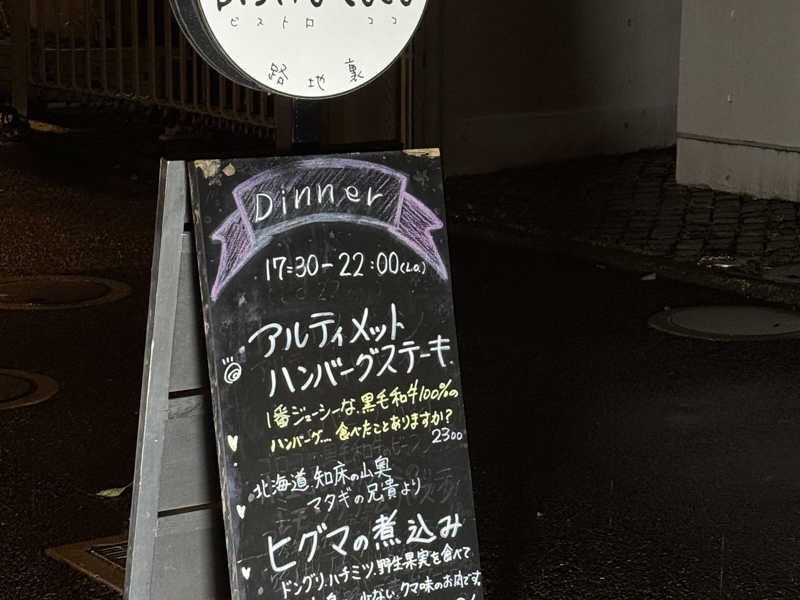 ビストロ ココ
路地裏
Dinner
17:30-22:00(L.O.)
アルティメット
ハンバーグステーキ.
1番ジューシーな.黒毛和牛100%の
ハンバーグ.... 食べたことありますか?
2300
北海道.知床の山奥
マタギの兄貴より
ヒグマの煮込み
ドングリ.ハチミツ.野生果実を食べて
少ない.クマ味のお肉です.